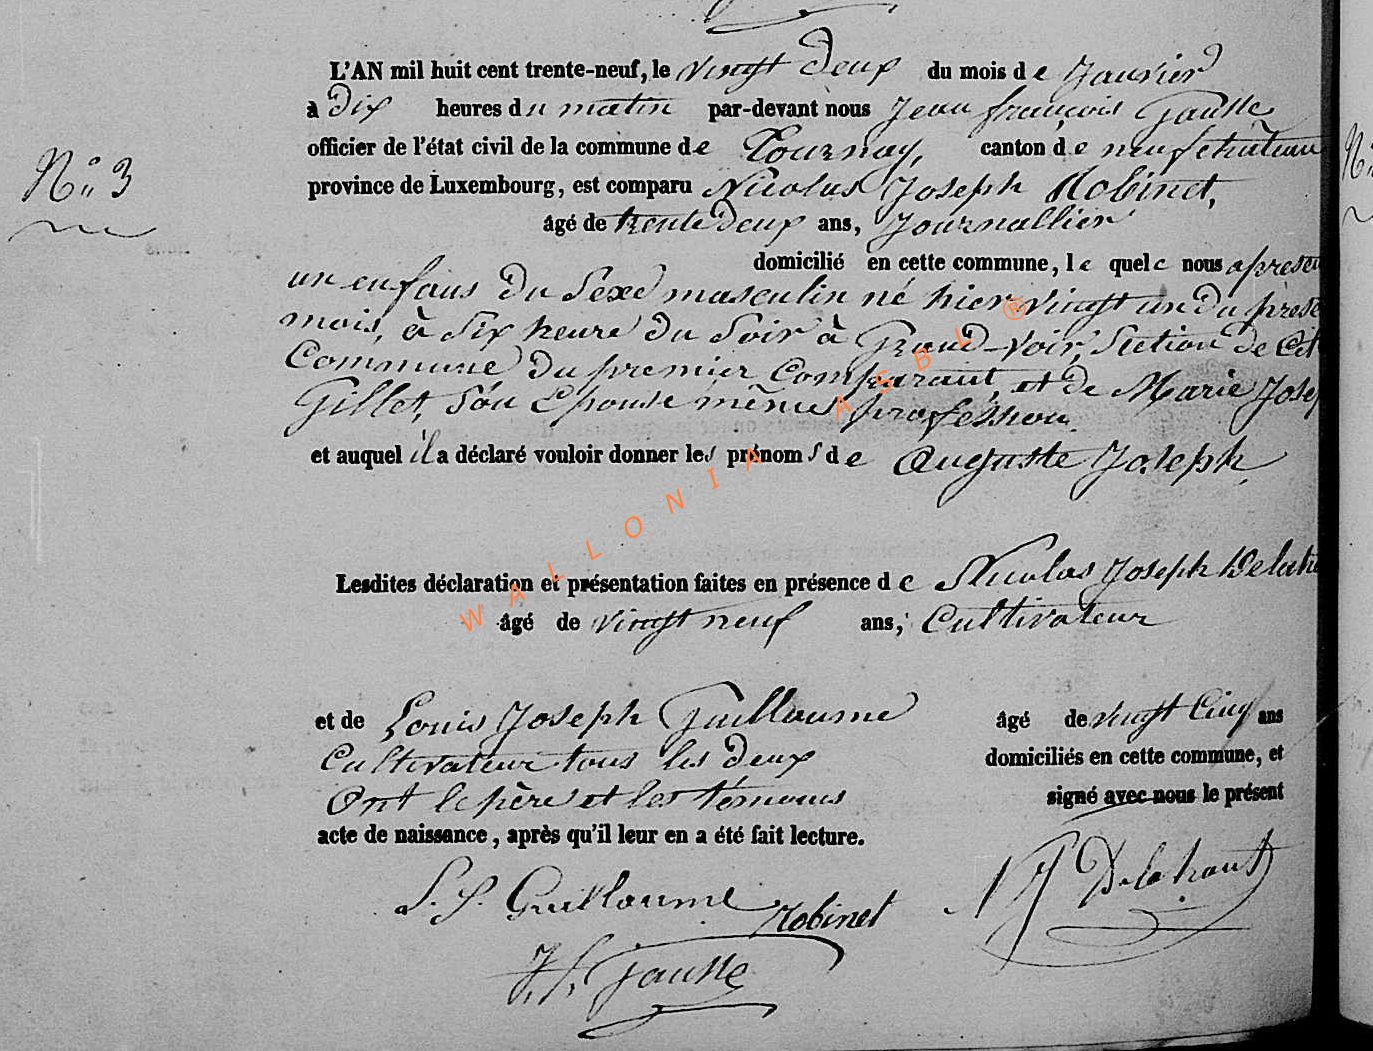 L'AN mil huit cent trente-neuf, le vingt deux du mois de Janvier
à dix heures du matin par-devant nous Jean françois Gausse
officier de l'état civil de la commune de Tournay, canton de neufchateau
N° 3
province de Luxembourg, est comparu Nicolas Joseph Robinet,
âgé de trente deux ans, Journallier
domicilié en cette commune, le quele nous a presen
un enfans du Sexe masculin né hier vingt un du prese
mois, à Six heure du Soir à Grand-Voir, Section de
Commune du premier Comparant, et de Marie Josep
Gillet, Son Epouse même profession.
et auquel il a déclaré vouloir donner les prénoms de Auguste Joseph,
WALLONIA ASBL ®
Lesdites déclaration et présentation faites en présence de Nicolas Joseph Delah
âgé de vingt neuf ans, Cultivateur
et de Louis Joseph Guillaume âgé de vingt Cinq ans
Cultivateur tous les deux domiciliés en cette commune, et
Ont le père et les témoins signé avec nous le présent
acte de naissance, après qu'il leur en a été fait lecture.
L. J. Guillaume Robinet N J Delahaut
J. f. Gausse